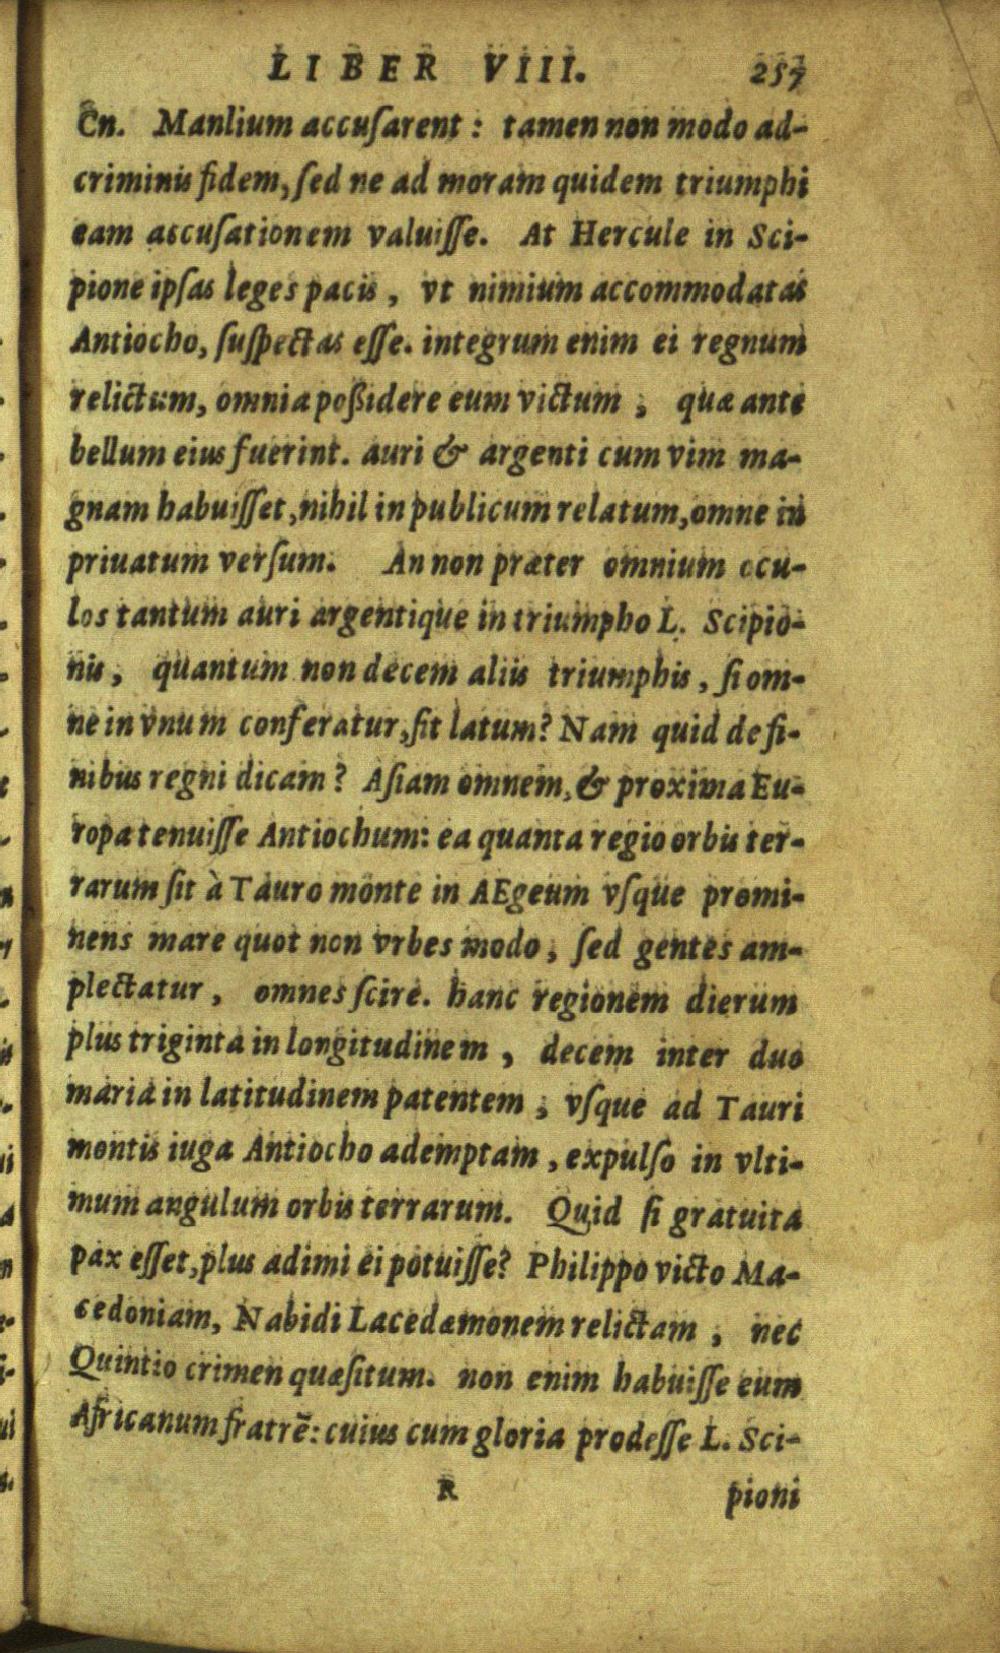 LIBER VIII. 257
Cn. Manlium accuſarent: tamen non modo ad-
criminis fidem, ſed ne ad moram quidem triumphi
eam accuſationem valuiſſe. At Hercule in Sci-
pione ipſas leges pacis, vt nimium accommodatas
Antiocho, ſuſpectas eſſe. integrum enim ei regnum
relictum, omnia poßidere eum victum; quæ ante
bellum eius fuerint. auri & argenti cum vim ma-
gnam habuiſſet, nihil in publicum relatum, omne in
priuatum verſum. An non præter omnium ocu-
los tantum auri argentique in triumpho L. Scipio-
nis, quantum non decem aliis triumphis, ſi om-
ne in vnum conferatur, ſit latum? Nam quid de fi-
nibus regni dicam? Aſiam omnem, & proxima Eu-
ropa tenuiſſe Antiochum: ea quanta regio orbis ter-
rarum ſit à Tauro monte in AEgeum vſque promi-
nens mare quot non vrbes modo, ſed gentes am-
plectatur, omnes ſcire. hanc regionem dierum
plus triginta in longitudinem, decem inter duo
maria in latitudinem patentem, vſque ad Tauri
montis iuga Antiocho ademptam, expulſo in vlti-
mum angulum orbis terrarum. Quid ſi gratuita
pax eſſet, plus adimi ei potuiſſe? Philippo victo Ma-
cedoniam, Nabidi Lacedæmonem relictam, nec
Quintio crimen quæſitum. non enim habuiſſe eum
Africanum fratrē: cuius cum gloria prodeſſe L. Sci-
R pioni